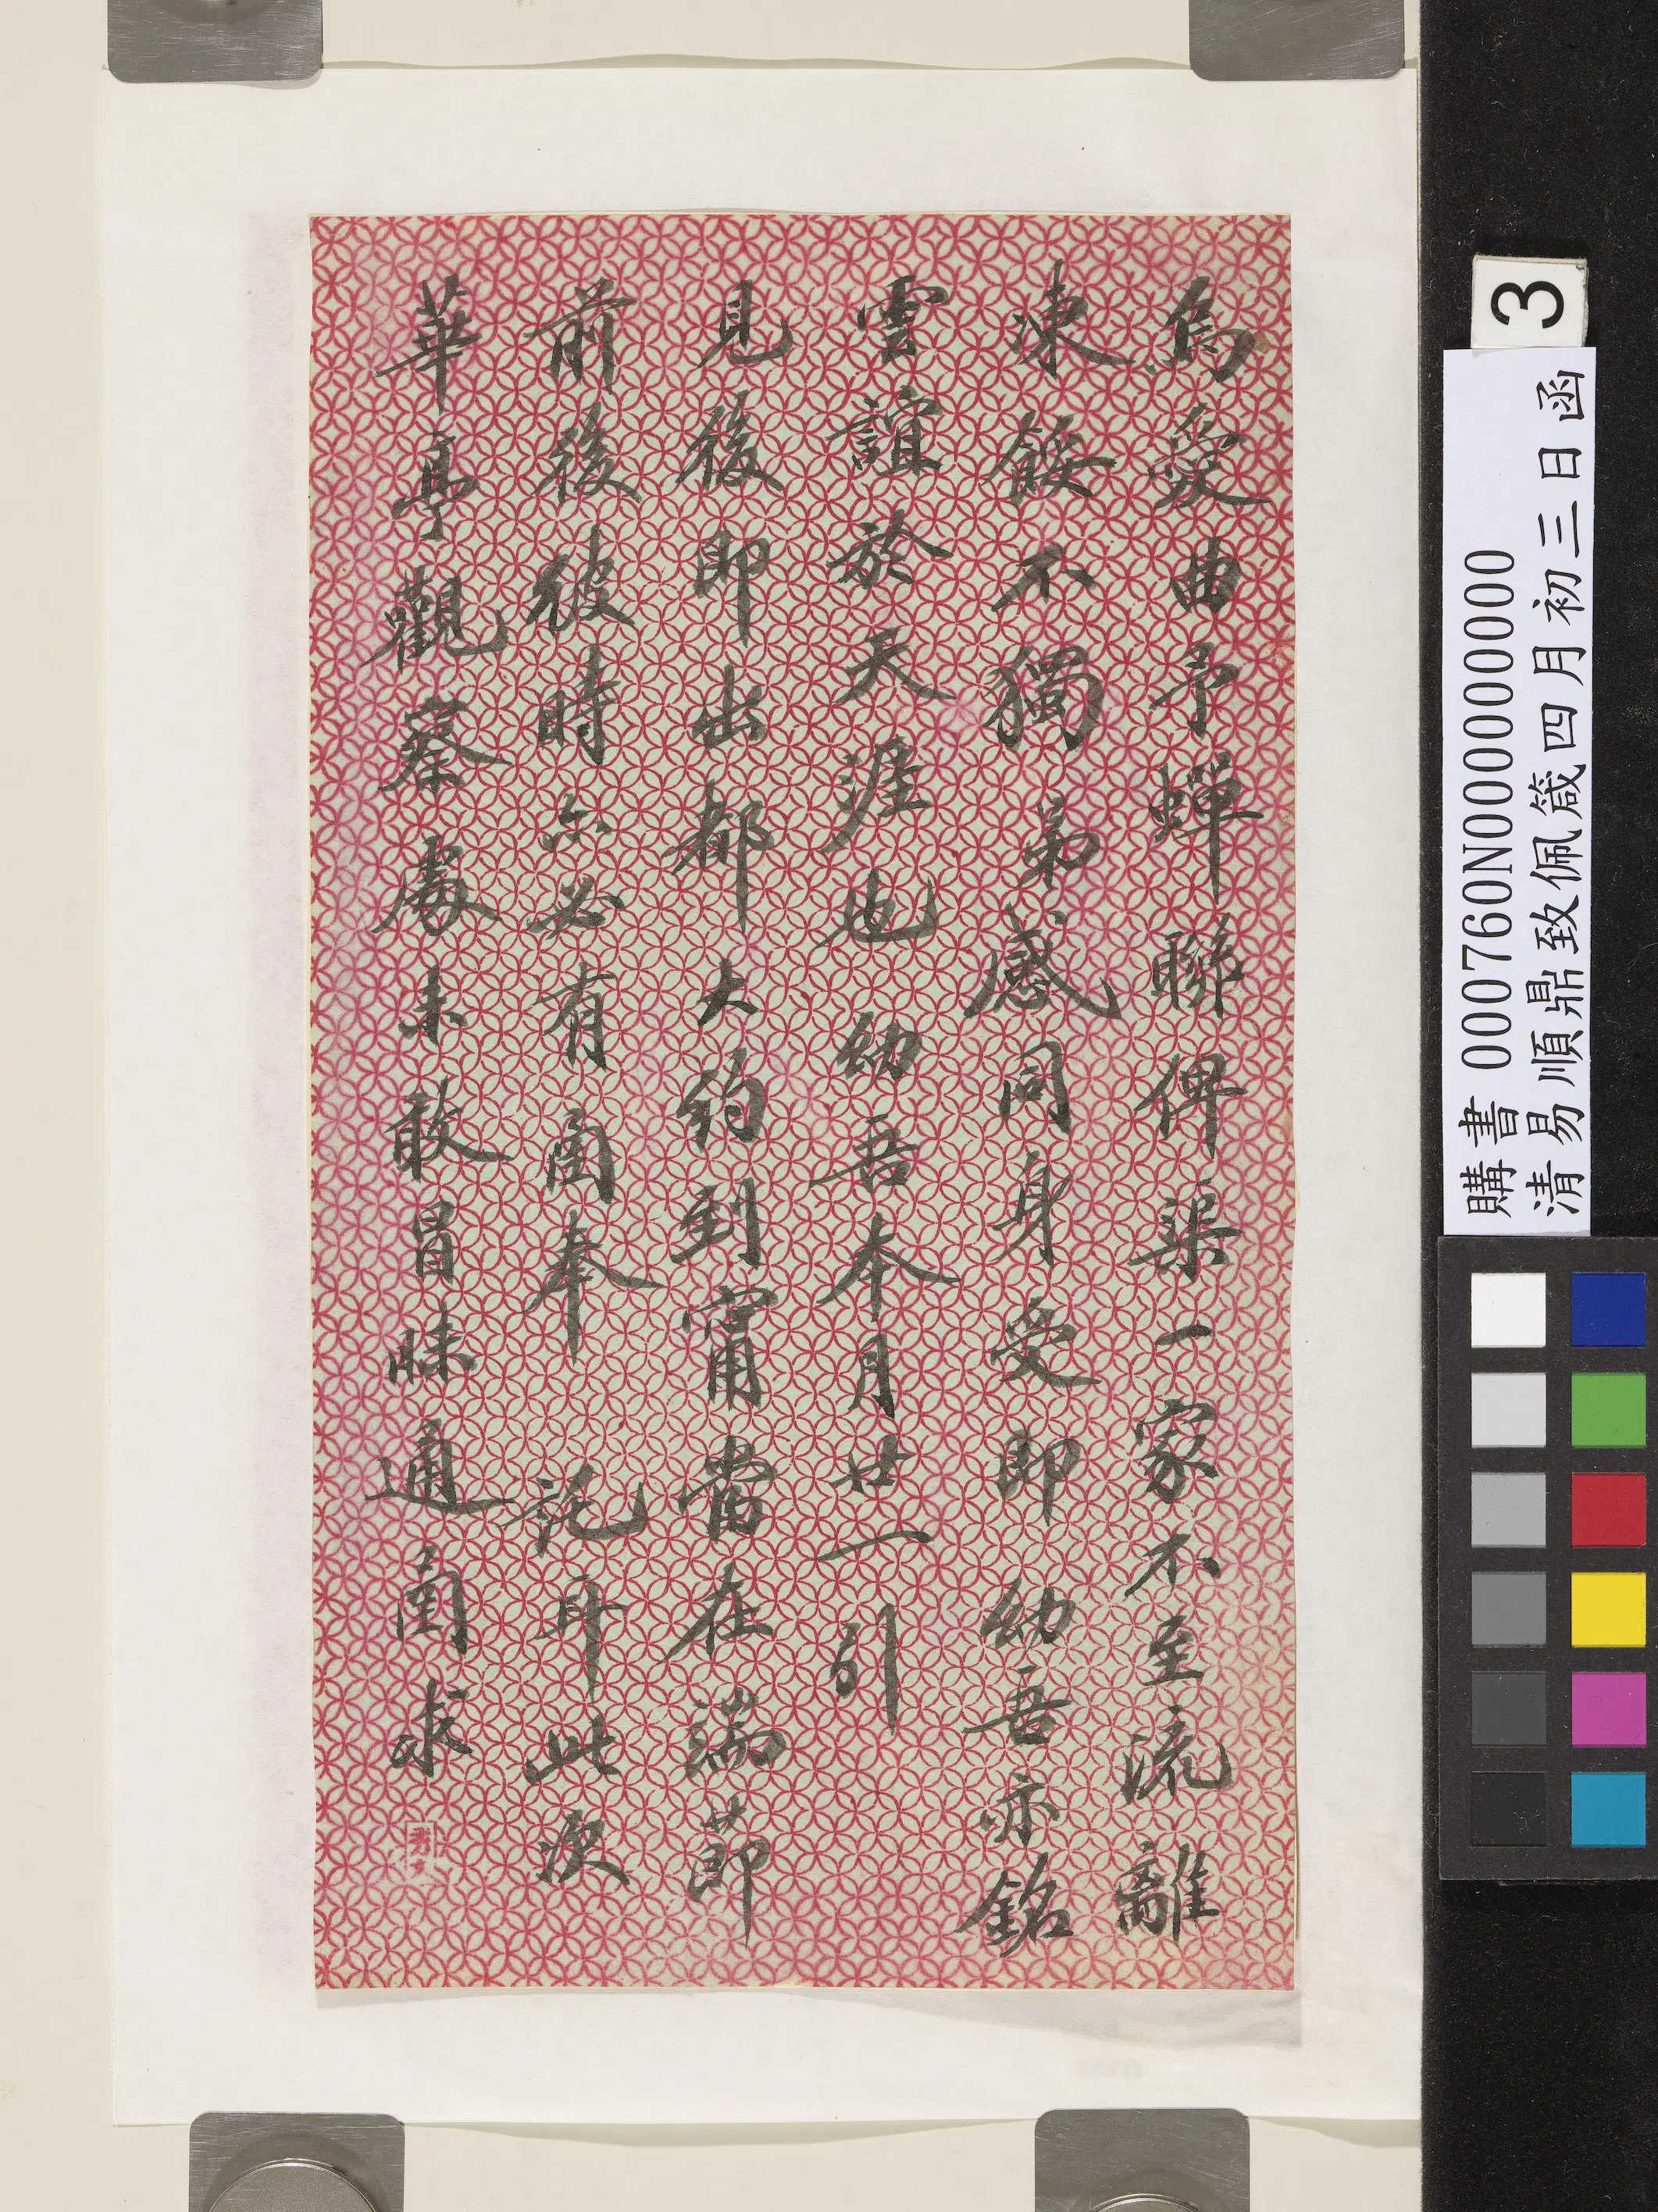 烏愛曲予蟬聯俾渠一家不至流離
凍餒不獨弟感同身受即幼吾亦銘
雲誼於天涯也幼吾本月廿一引
見後即出都大約到甯當在端節
前後彼時亦必有函奉託耳此次
華亭觀察處未敢冒昧通函求
3
購書 000760N000000000
清易順鼎致佩箴四月初三日函